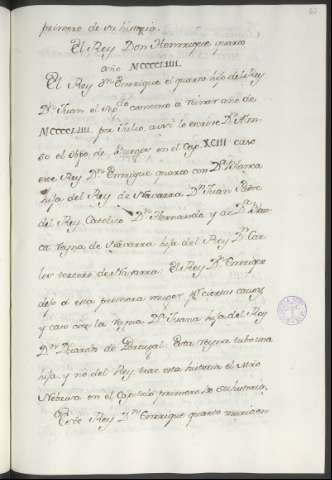 primero de su historia.
El Rey Don Henrrique quarto
año MCCCCLIIII.
El Rey Dn Enrrique el quarto hijo del Rey
Dn Juan el Sgdo comenzo a Reinar año de
MCCCCLIIII por Julio, assi lo escrive Dn Alon-
so el Obpo de Burgos en el Cap. XCIII caso
este Rey Dn Enrrique quarto con Da Blanca
hija del Rey de Navarra Dn Juan Padre
del Rey Catolico Dn Hernando y de Da Blan-
ca Reyna de Navarra hija del Rey Dn Car-
los tercero de Navarra. El Rey Dn Enrriqe
dejo a esta primera muger pr ciertas causas
y caso con la Reyna Da Juana hija del Rey
Dn Duarte de Portugal. Esta reyna tubo una
hija y no del Rey trae esta historia el Mro
Nebrixa en el Capitulo primero de su historia.
Este Rey Dn Enrrique quarto murio en